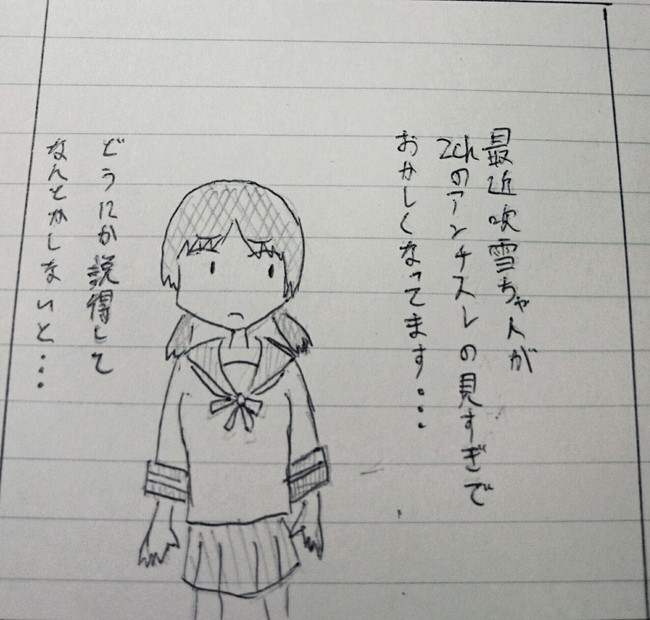 最近吹雪ちゃんが
2chのアンチスレの見すぎで
おかしくなってます...
どうにか説得して
なんとかしないと...